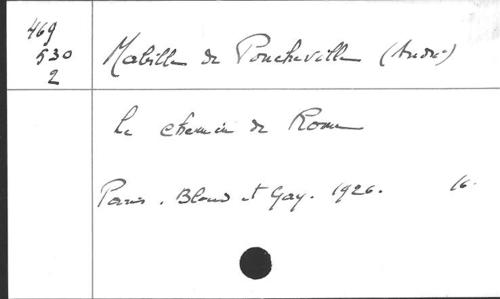 469
530
2
Mabille de Poncheville (André)
Le chemin de Rome
Paris. Bloud et Gay. 1926. 16.